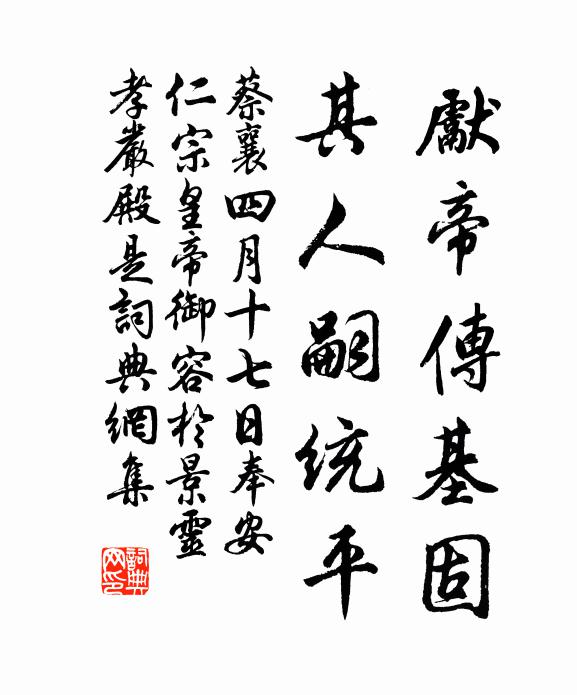 獻帝傳基固
其人嗣統平
蔡襄四月十七日奉安
仁宗皇帝御容於景靈
孝嚴殿是詞典網集
詞典网印